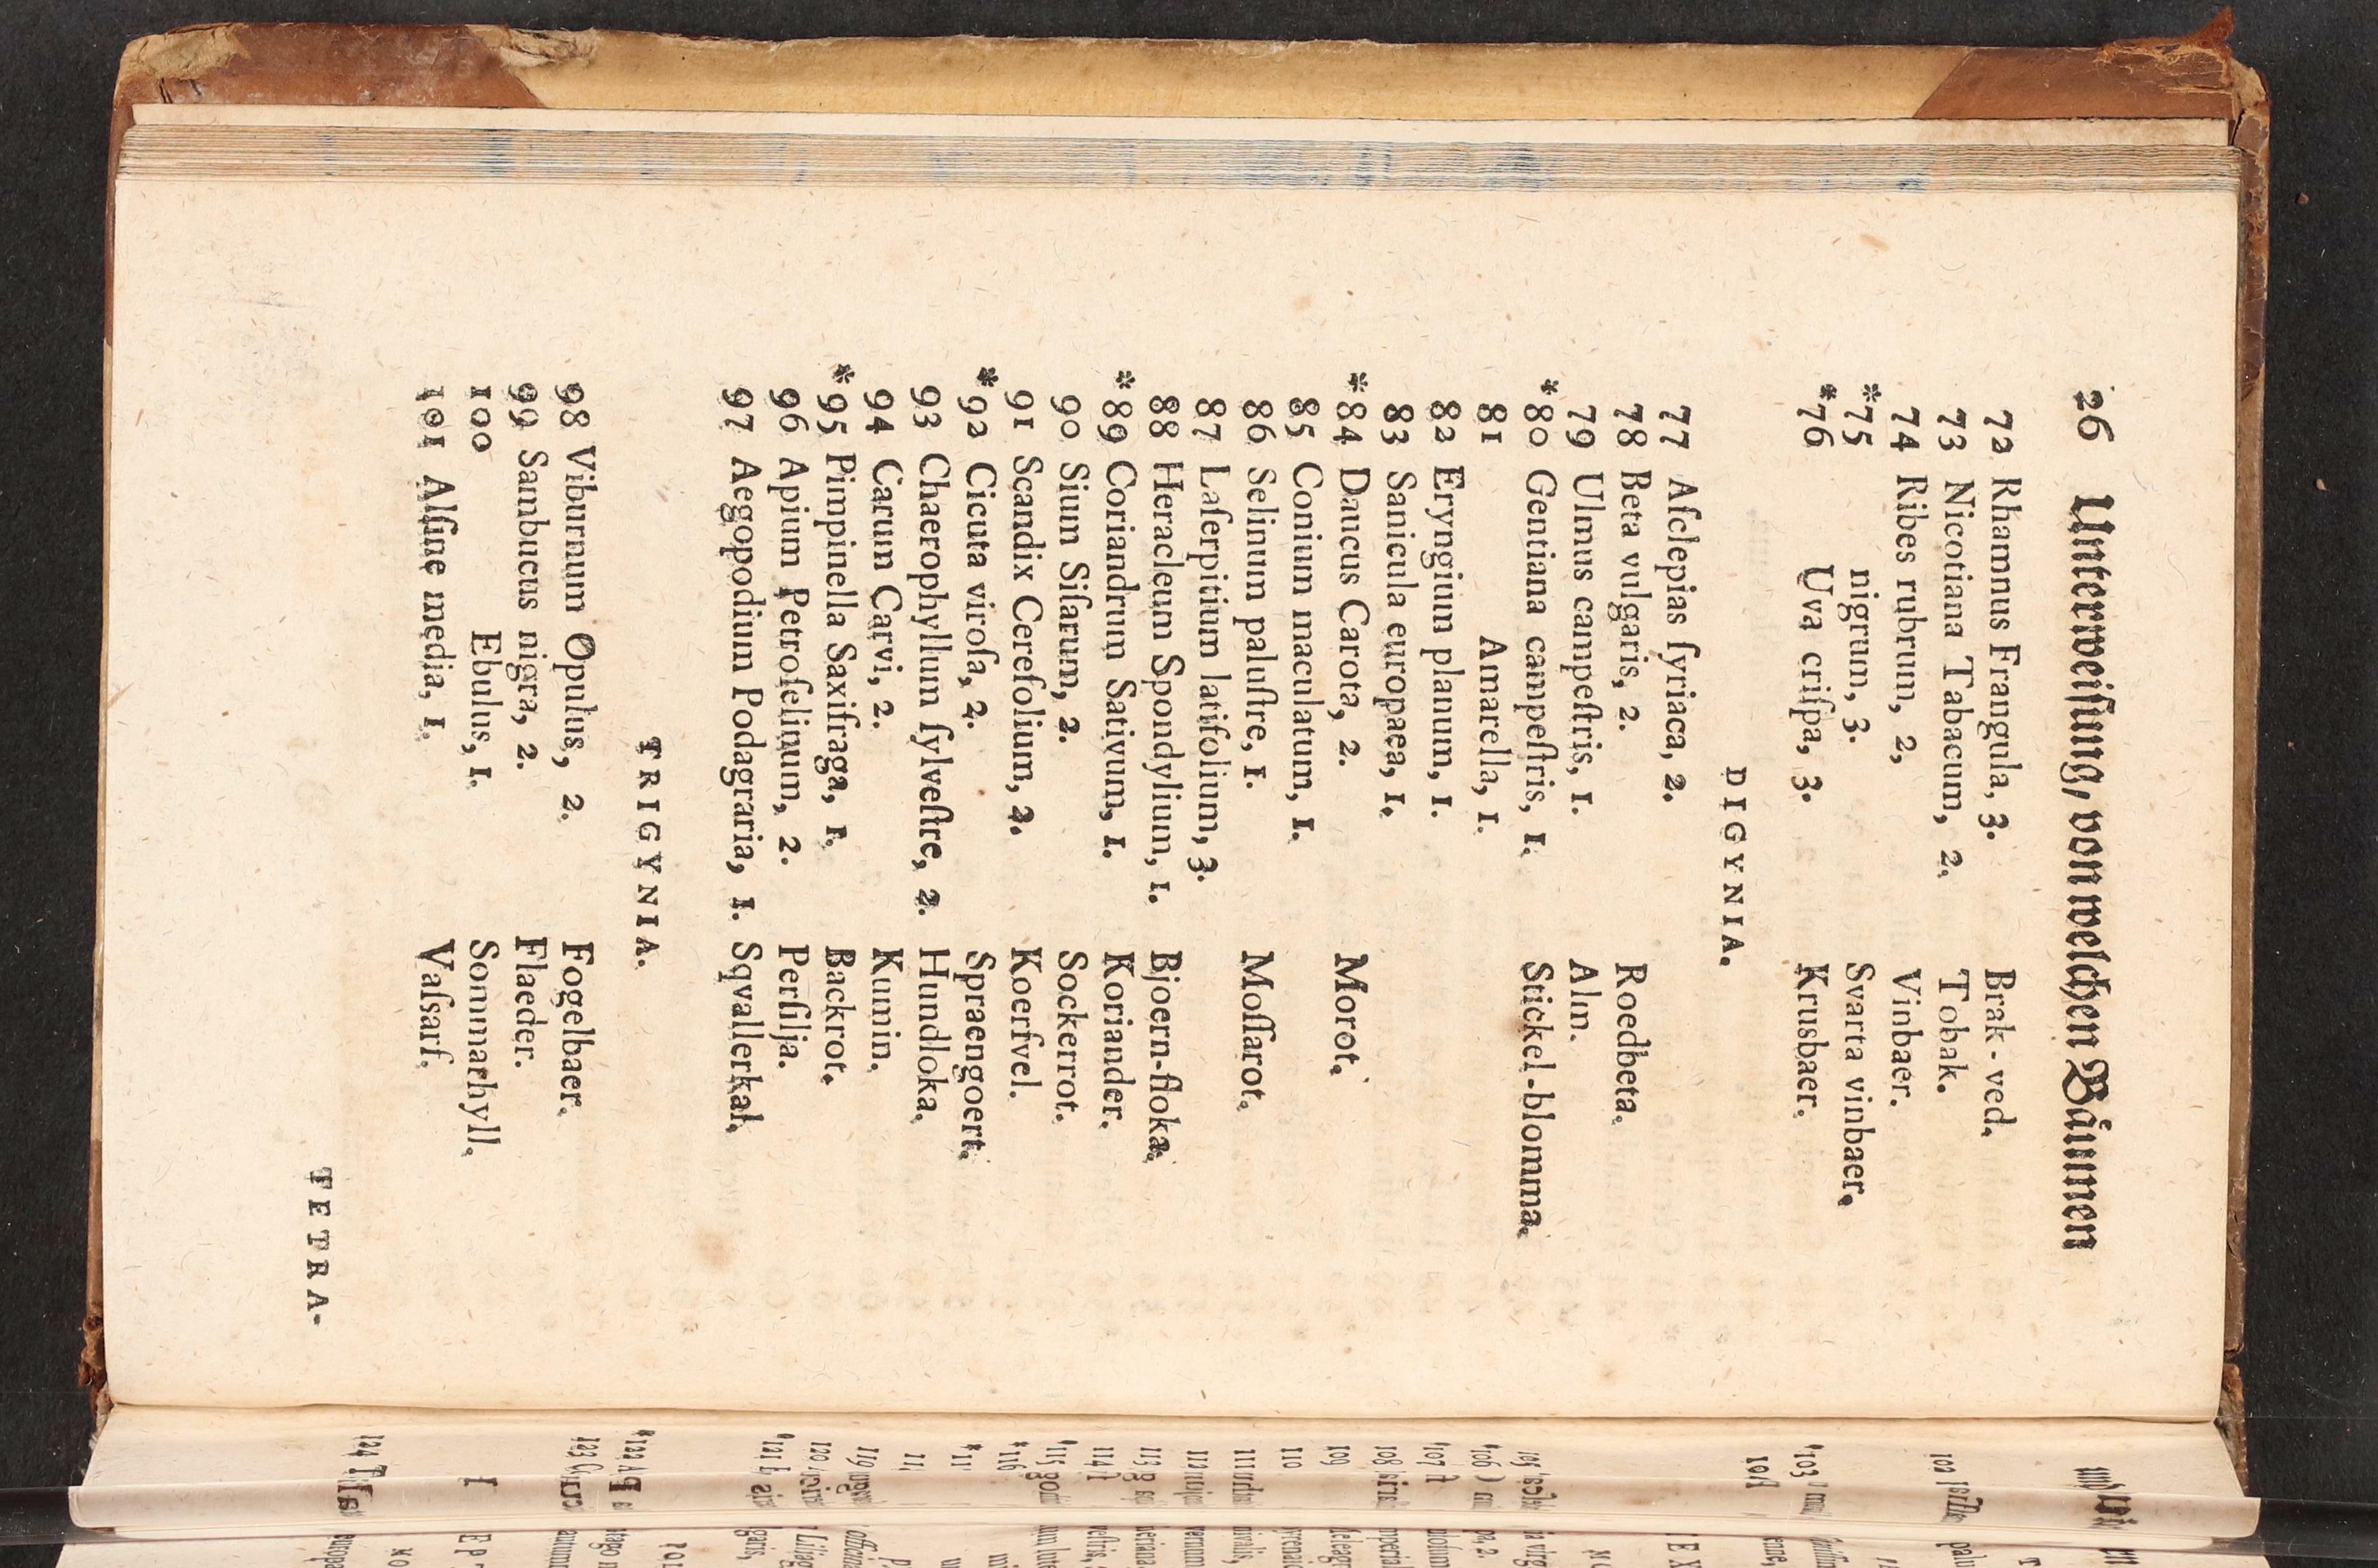 26 Unterweiſung, von welchen Bäumen
72 Rhamnus Frangula, 3. Brak-ved.
73 Nicotiana Tabacum, 2. Tobak.
74 Ribes rubrum, 2, Vinbaer.
*75 nigrum, 3. Svarta vinbaer.
*76 Uva criſpa, 3. Krusbaer.
DIGYNIA.
77 Aſclepias ſyriaca, 2.
78 Beta vulgaris, 2. Roedbeta.
79 Ulmus campeſtris, 1. Alm.
*80 Gentiana campeſtris, 1. Stickel-blomma.
81 Amarella, 1.
82 Eryngium planum, 1.
83 Sanicula europaea, 1.
*84 Daucus Carota, 2. Morot.
85 Conium maculatum, 1.
86 Selinum paluſtre, 1. Moſſarot.
87 Laſerpitium latifolium, 3.
88 Heracleum Spondylium, 1. Bjoern-floka.
*89 Coriandrum Sativum, 1. Koriander.
90 Sium Siſarum, 2. Sockerrot.
91 Scandix Cerefolium, 2. Koerfvel.
*92 Cicuta viroſa, 2. Spraengoert.
93 Chaerophyllum ſylveſtre, 2. Hundloka.
94 Carum Carvi, 2. Kumin.
*95 Pimpinella Saxifraga, 1. Backrot.
96 Apium Petroſelinum, 2. Perſilja.
97 Aegopodium Podagraria, 1. Sqvallerkal.
TRIGYNIA.
98 Viburnum Opulus, 2. Fogelbaer.
99 Sambucus nigra, 2. Flaeder.
100 Ebulus, 1. Sommarhyll.
101 Alſine media, 1. Vaſsarf.
TETRA-